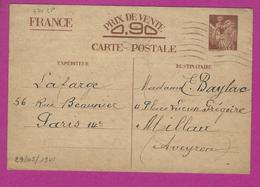 FRANCE
PRIX DE VENTE
0,90
CARTE POSTALE
EXPÉDITEUR
DESTINATAIRE
Lafarge
Madame E. Baylac
56 Rue Beaunier
4 Place Lucien Grégoire
Paris 14e
Millau
Aveyron